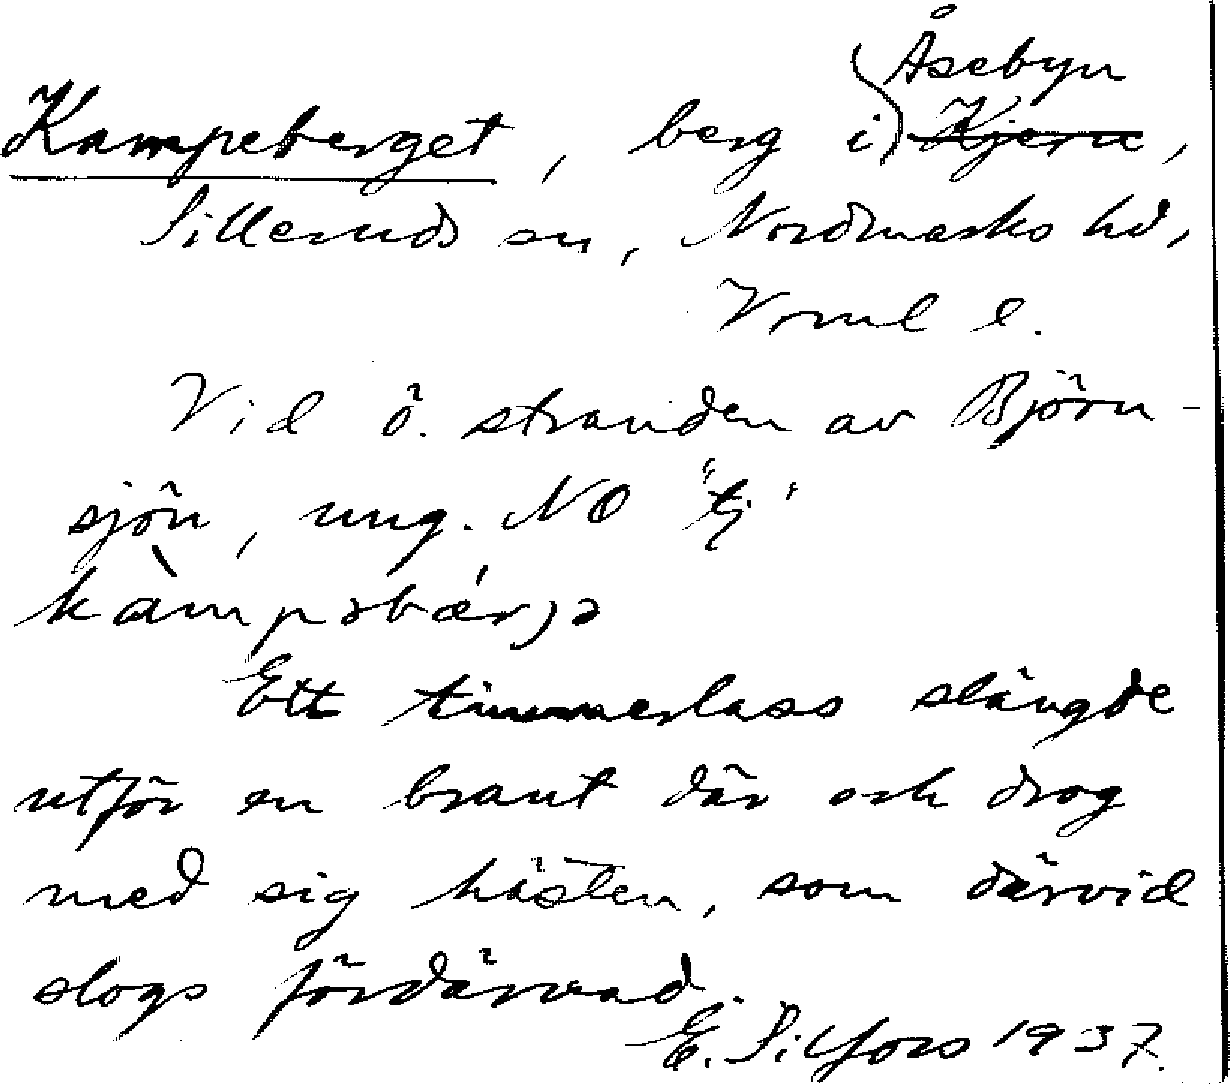 Åsebyn
Kampeberget, berg i Kjern,
Silleruds sn, Nordmarks hd,
Vrml l.
Vid ö. stranden av Björn-
sjön, ung. NO
kàmpəbǽrjə
Ett timmerlass slängde
utför en brant där och drog
med sig hästen, som därvid
slogs fördärvad.
E. Silfors 1937.